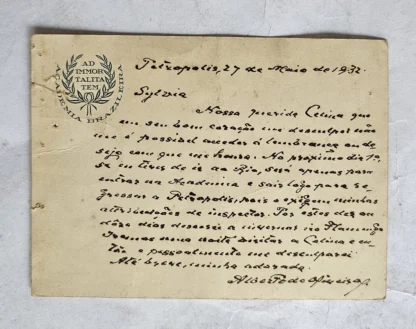 AD
IMMOR
TALITA
TEM
ACADEMIA BRAZILEIRA
Petropolis, 27 de Maio de 1932.
Sylvia
Nossa querida Celina que
em seu bom coração me desculpe: não
me é possivel acceder á lembrança ou de-
sejo com que me honra. No proximo dia 1º,
se eu tiver de ir ao Rio, será apenas para
entrar na Academia e sair logo para re-
gressar a Petropolis, pois o exigem minhas
attribuições de inspector. Por estes dez ou
doze dias descerei a invernar no Flamengo
Iremos uma noite visitar a Celina e en-
tão e pessoalmente me desculparei
Até breve, minha adorada.
Alberto de Oliveira